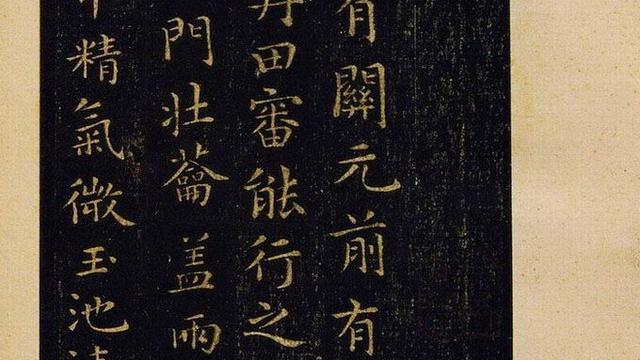 有關元前有
丹田審能行之
門壯蘥蓋兩
精氣微玉池